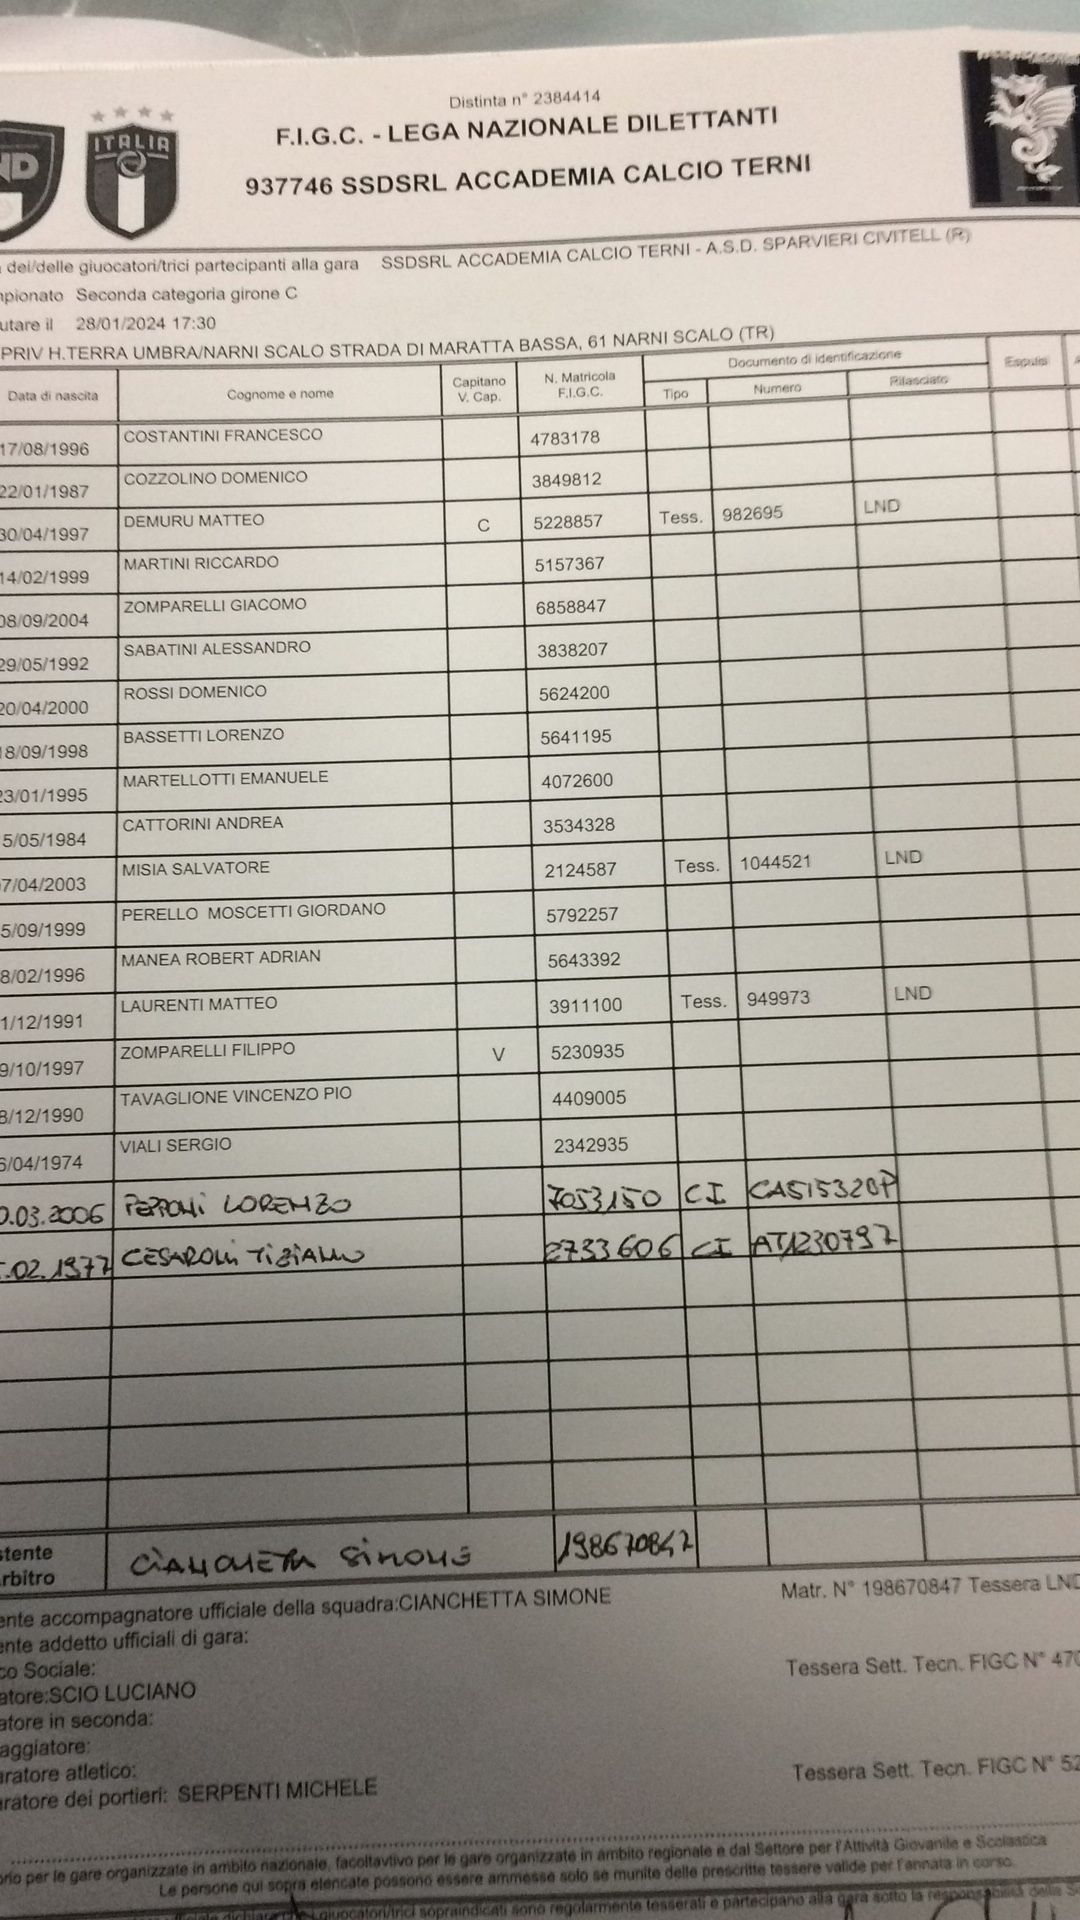 Distinta n° 2384414
F.I.G.C. - LEGA NAZIONALE DILETTANTI
937746 SSDSRL ACCADEMIA CALCIO TERNI
ND
ITALIA
dei/delle giuocatori/trici partecipanti alla gara SSDSRL ACCADEMIA CALCIO TERNI - A.S.D. SPARVIERI CIVITELL (R)
pionato Seconda categoria girone C
utare il 28/01/2024 17:30
PRIV H.TERRA UMBRA/NARNI SCALO STRADA DI MARATTA BASSA, 61 NARNI SCALO (TR)
Data di nascita Cognome e nome Capitano V. Cap. N. Matricola F.I.G.C. Documento di identificazione Tipo Numero Rilasciato Espulsi
17/08/1996 COSTANTINI FRANCESCO 4783178
22/01/1987 COZZOLINO DOMENICO 3849812
30/04/1997 DEMURU MATTEO C 5228857 Tess. 982695 LND
14/02/1999 MARTINI RICCARDO 5157367
08/09/2004 ZOMPARELLI GIACOMO 6858847
29/05/1992 SABATINI ALESSANDRO 3838207
20/04/2000 ROSSI DOMENICO 5624200
18/09/1998 BASSETTI LORENZO 5641195
23/01/1995 MARTELLOTTI EMANUELE 4072600
5/05/1984 CATTORINI ANDREA 3534328
7/04/2003 MISIA SALVATORE 2124587 Tess. 1044521 LND
5/09/1999 PERELLO MOSCETTI GIORDANO 5792257
8/02/1996 MANEA ROBERT ADRIAN 5643392
1/12/1991 LAURENTI MATTEO 3911100 Tess. 949973 LND
9/10/1997 ZOMPARELLI FILIPPO V 5230935
8/12/1990 TAVAGLIONE VINCENZO PIO 4409005
6/04/1974 VIALI SERGIO 2342935
0.03.2006 PEPPONI LORENZO 7053150 CI CA51532BP
.02.1977 CESARONI TIZIANO 2733606 CI AT1230797
stente
rbitro CIANCHETTA SIMONE 198670847
ente accompagnatore ufficiale della squadra:CIANCHETTA SIMONE Matr. N° 198670847 Tessera LND
ente addetto ufficiali di gara:
co Sociale: Tessera Sett. Tecn. FIGC N° 470
atore:SCIO LUCIANO
atore in seconda:
aggiatore:
aratore atletico: Tessera Sett. Tecn. FIGC N° 52
aratore dei portieri: SERPENTI MICHELE
orio per le gare organizzate in ambito nazionale, facoltavtivo per le gare organizzate in ambito regionale e dal Settore per l'Attività Giovanile e Scolastica
Le persone qui sopra elencate possono essere ammesse solo se munite delle prescritte tessere valide per l'annata in corso.
giuocatori/trici sopraindicati sono regolarmente tesserati e partecipano alla gara sotto la responsabilità della